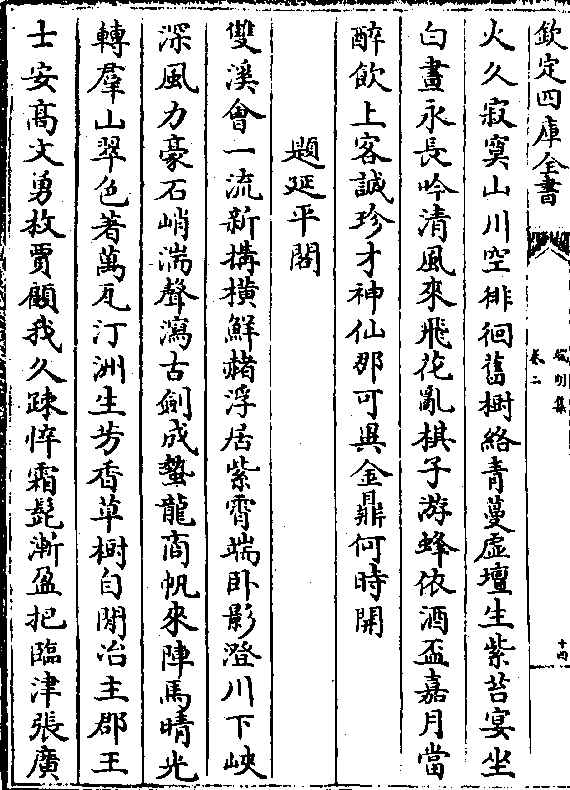 欽定四庫全書
端明集
卷二
十四
火久寂寞山川空徘徊舊樹絡青蔓虛壇生紫苔宴坐
白晝永長吟清風來飛花亂棋子游蜂依酒盃嘉月當
醉飲上客誠珍才神仙那可冀金鼎何時開
題延平閣
雙溪會一流新構橫鮮赭浮居紫霄端卧影澄川下峽
深風力豪石峭湍聲瀉古劍成蟄龍商帆來陣馬晴光
轉羣山翠色著萬瓦汀洲生芳香草樹自閒冶主郡王
士安高文勇枚賈顧我久踈悴霜髭漸盈把臨津張廣